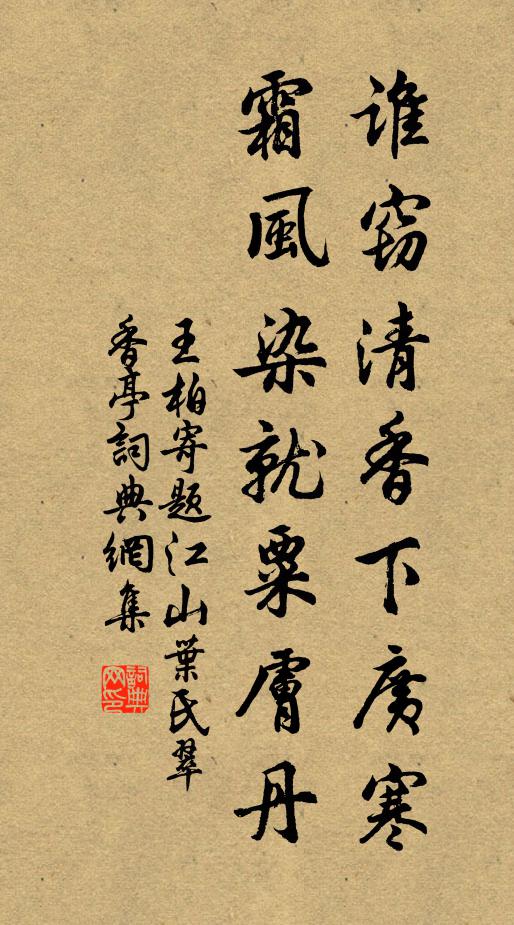 谁窃清香下廣寒
霜風染就粟膚丹
王柏寄题江山葉氏翠
香亭詞典網集
詞典网印